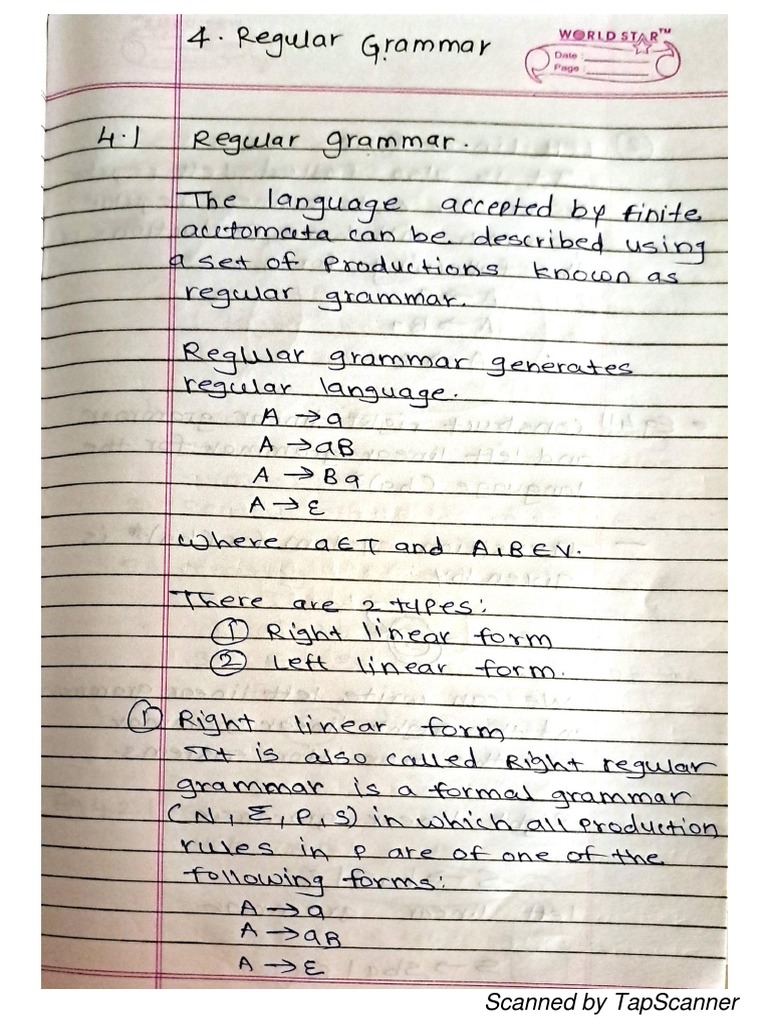 4. Regular Grammar
WORLD STAR™
Date :
Page :
4.1 Regular grammar.
The language accepted by finite
automata can be described using
a set of productions known as
regular grammar.
Regular grammar generates
regular language.
A → a
A → aB
A → Ba
A → ε
where a ∈ T and A, B ∈ V.
There are 2 types:
① Right linear form
② Left linear form.
① Right linear form
It is also called Right regular
grammar is a formal grammar
(N, Σ, P, S) in which all production
rules in P are of one of the
following forms:
A → a
A → aB
A → ε
Scanned by TapScanner